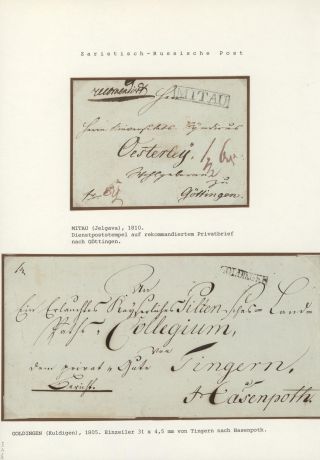 Zaristisch-Russische Post
recomendirt
MITAU
Herrn Universitäts Syndicus
Oesterley
Wohlgeboren
zu
Göttingen.
MITAU (Jelgava), 1810.
Dienstpoststempel auf rekommandiertem Privatbrief
nach GÖttingen.
GOLDINGEN
An
Ein Erlauchtes Kayserliches Pilten-sches Land-
Collegium,
Von
dem privat Gute Tingern,
Hasenpoth.
GOLDINGEN (Kuldigen), 1805. Einzeiler 31 x 4,5 mm von Tingern nach Hasenpoth.